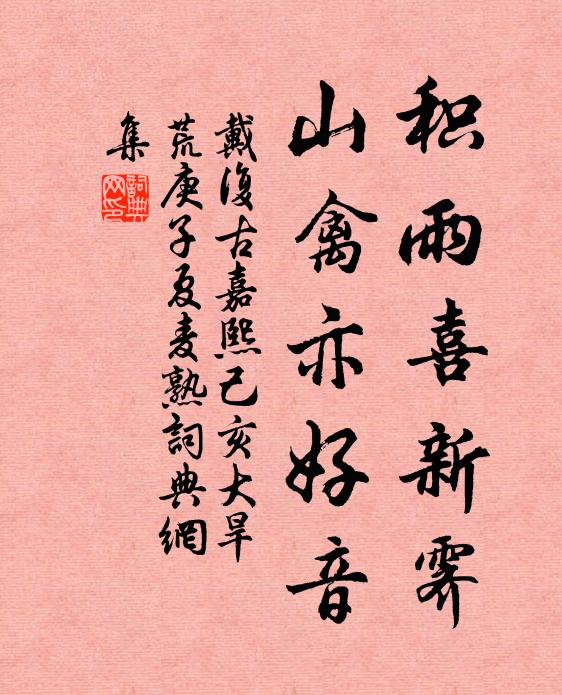 积雨喜新霽
山禽亦好音
戴復古嘉熙己亥大旱
荒庚子夏麦熟詞典網
集
詞典
网印